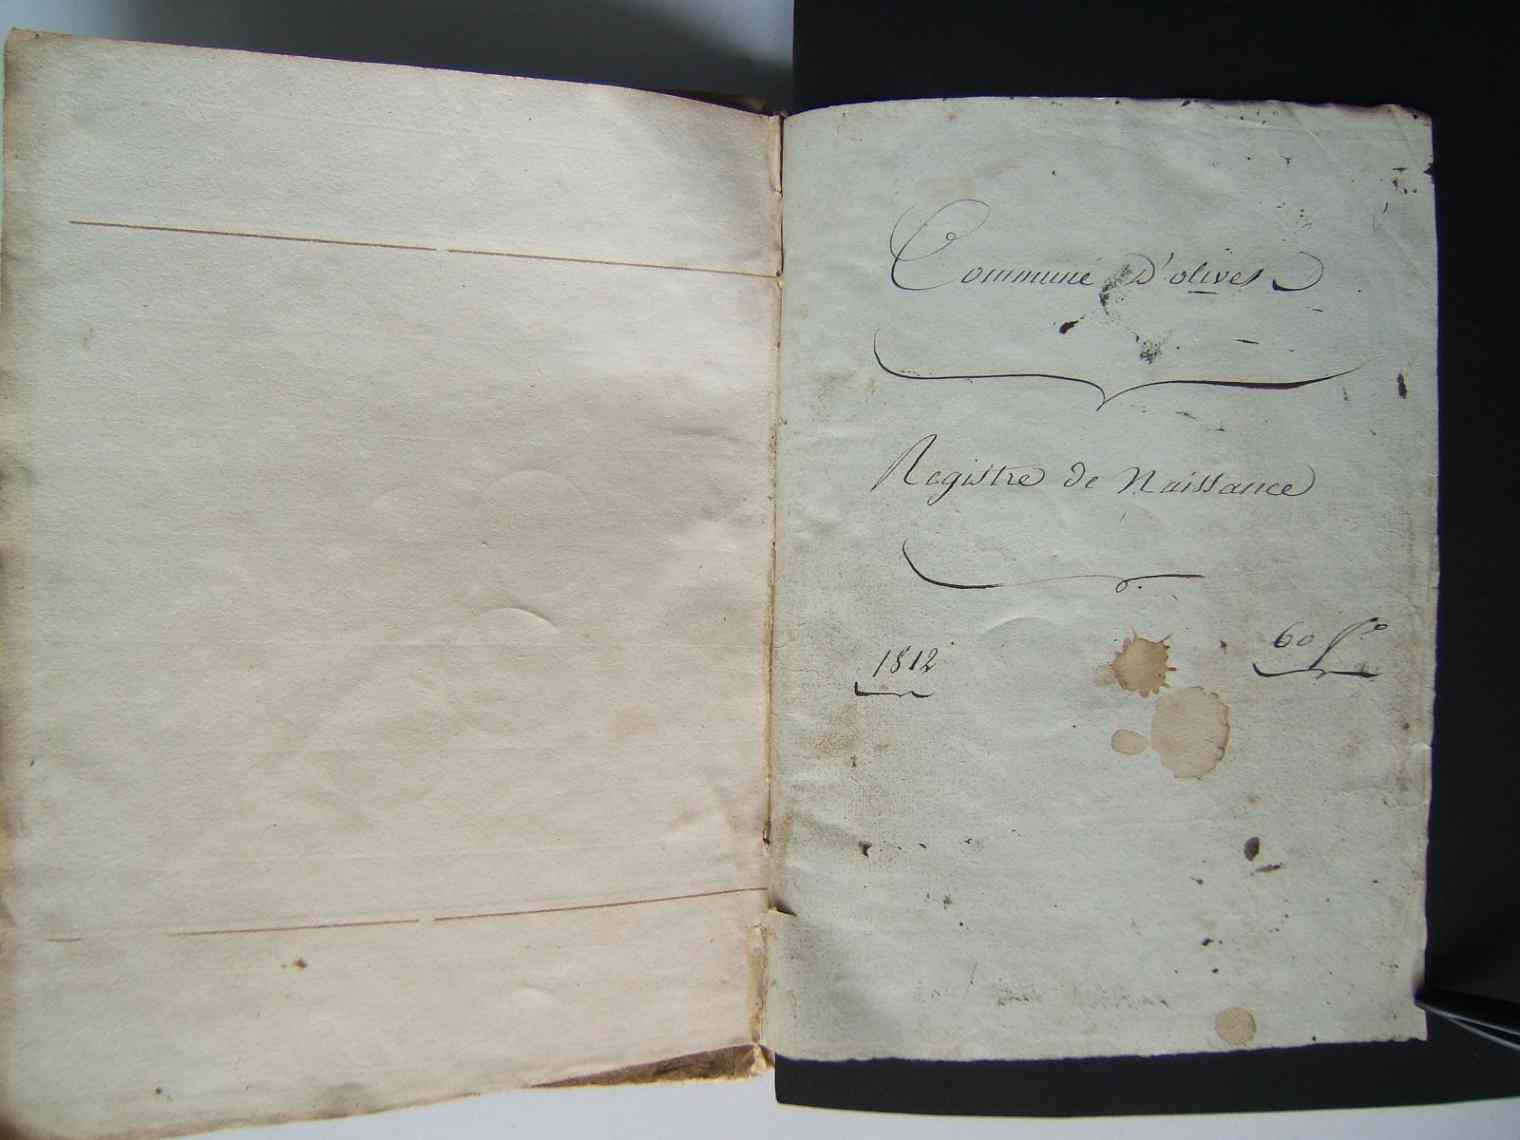 Commune D'olives
Registre de Naissance
1812
60 ff.º